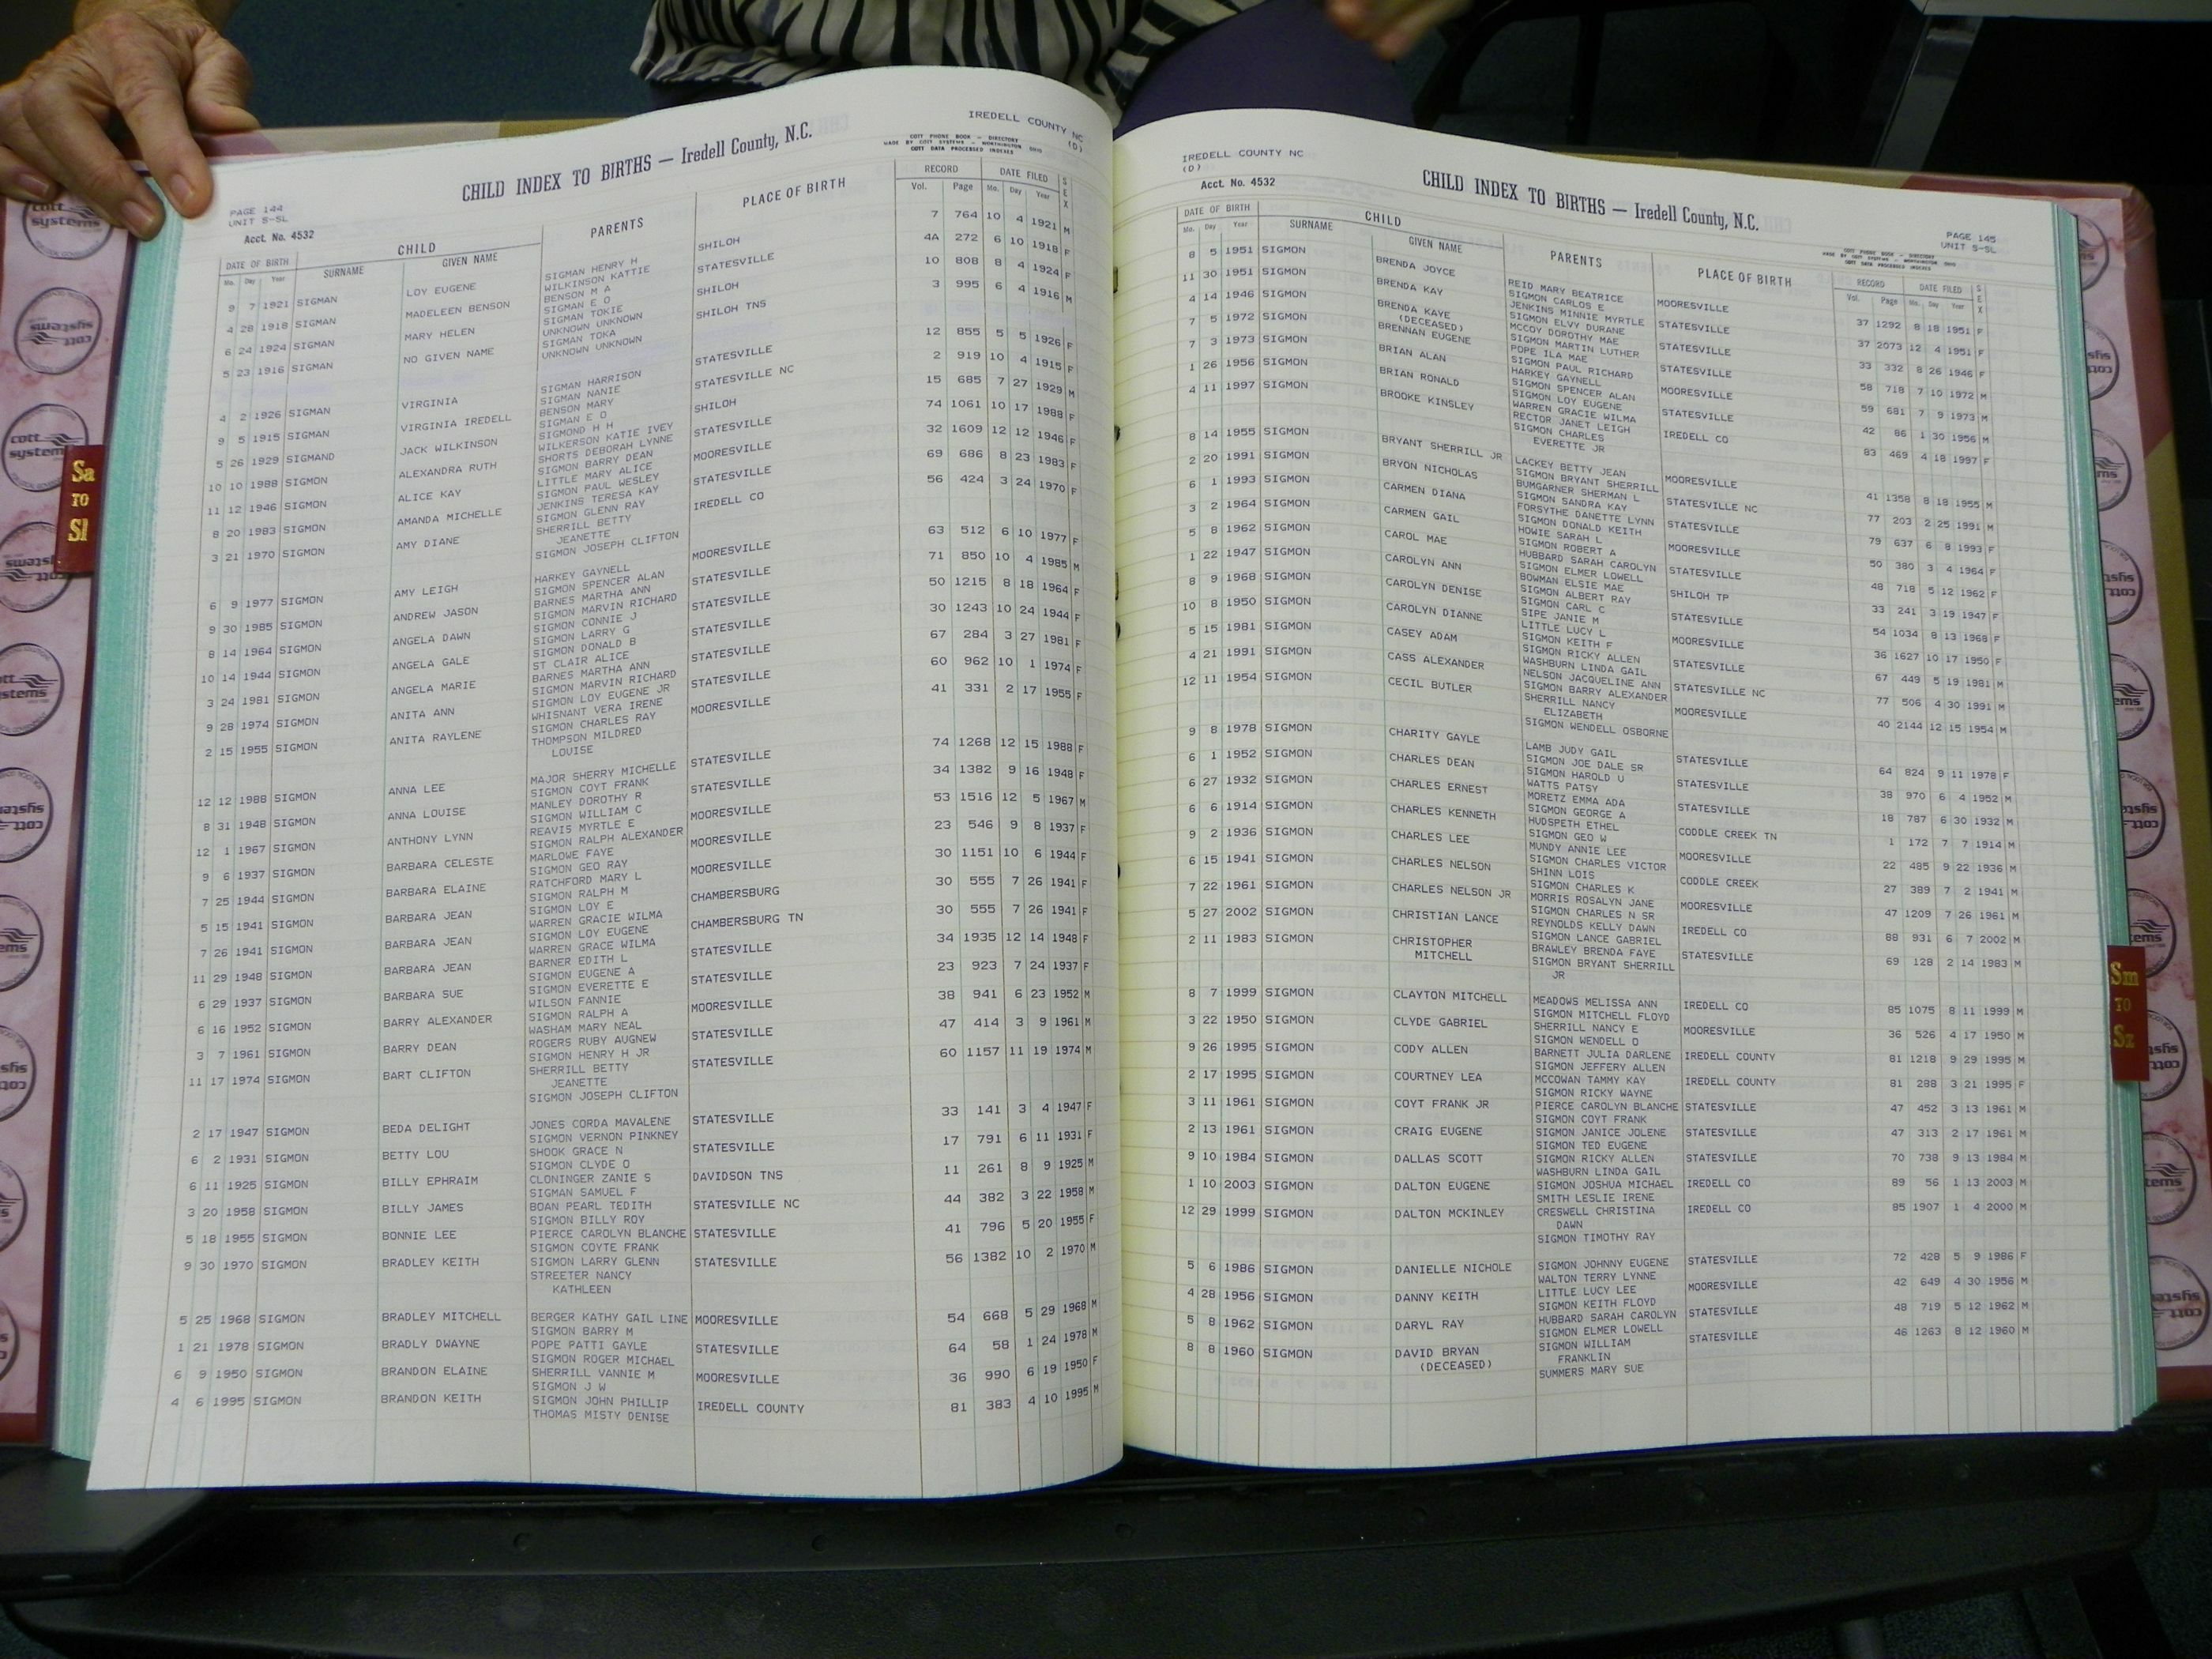 IREDELL COUNTY NC
(D)
CHILD INDEX TO BIRTHS — Iredell County, N.C.
COTT PHONE BOOK — DIRECTORY
MADE BY COTT SYSTEMS — WORTHINGTON OHIO
COTT DATA PROCESSED INDEXES
PAGE 144
UNIT S-SL
Acct. No. 4532
DATE OF BIRTH CHILD PARENTS PLACE OF BIRTH RECORD DATE FILED SEX
Mo. Day Year SURNAME GIVEN NAME Vol. Page Mo. Day Year
9 7 1921 SIGMAN LOY EUGENE SIGMAN HENRY H SHILOH 7 764 10 4 1921 M
WILKINSON KATTIE
4 28 1918 SIGMAN MADELEEN BENSON BENSON M A STATESVILLE 4A 272 6 10 1918 F
SIGMAN E O
6 24 1924 SIGMAN MARY HELEN SIGMAN TOKIE SHILOH 10 808 8 4 1924 F
UNKNOWN UNKNOWN
5 23 1916 SIGMAN NO GIVEN NAME SIGMAN TOKA SHILOH TNS 3 995 6 4 1916 M
UNKNOWN UNKNOWN
4 2 1926 SIGMAN VIRGINIA SIGMAN HARRISON STATESVILLE 12 855 5 5 1926 F
SIGMAN NANIE
9 5 1915 SIGMAN VIRGINIA IREDELL BENSON MARY STATESVILLE NC 2 919 10 4 1915 F
SIGMAN E O
5 26 1929 SIGMAND JACK WILKINSON SIGMOND H H SHILOH 15 685 7 27 1929 M
WILKERSON KATIE IVEY
10 10 1988 SIGMON ALEXANDRA RUTH SHORTS DEBORAH LYNNE STATESVILLE 74 1061 10 17 1988 F
SIGMON BARRY DEAN
11 12 1946 SIGMON ALICE KAY LITTLE MARY ALICE MOORESVILLE 32 1609 12 12 1946 F
SIGMON PAUL WESLEY
8 20 1983 SIGMON AMANDA MICHELLE JENKINS TERESA KAY STATESVILLE 69 686 8 23 1983 F
SIGMON GLENN RAY
3 21 1970 SIGMON AMY DIANE SHERRILL BETTY IREDELL CO 56 424 3 24 1970 F
JEANETTE
SIGMON JOSEPH CLIFTON
6 9 1977 SIGMON AMY LEIGH HARKEY GAYNELL MOORESVILLE 63 512 6 10 1977 F
SIGMON SPENCER ALAN
9 30 1985 SIGMON ANDREW JASON BARNES MARTHA ANN STATESVILLE 71 850 10 4 1985 M
SIGMON MARVIN RICHARD
8 14 1964 SIGMON ANGELA DAWN SIGMON CONNIE J STATESVILLE 50 1215 8 18 1964 F
SIGMON LARRY G
10 14 1944 SIGMON ANGELA GALE SIGMON DONALD B STATESVILLE 30 1243 10 24 1944 F
ST CLAIR ALICE
3 24 1981 SIGMON ANGELA MARIE BARNES MARTHA ANN STATESVILLE 67 284 3 27 1981 F
SIGMON MARVIN RICHARD
9 28 1974 SIGMON ANITA ANN SIGMON LOY EUGENE JR STATESVILLE 60 962 10 1 1974 F
WHISNANT VERA IRENE
2 15 1955 SIGMON ANITA RAYLENE SIGMON CHARLES RAY MOORESVILLE 41 331 2 17 1955 F
THOMPSON MILDRED
LOUISE
12 12 1988 SIGMON ANNA LEE MAJOR SHERRY MICHELLE STATESVILLE 74 1268 12 15 1988 F
SIGMON COYT FRANK
8 31 1948 SIGMON ANNA LOUISE MANLEY DOROTHY R STATESVILLE 34 1382 9 16 1948 F
SIGMON WILLIAM C
12 1 1967 SIGMON ANTHONY LYNN REAVIS MYRTLE E MOORESVILLE 53 1516 12 5 1967 M
SIGMON RALPH ALEXANDER
9 6 1937 SIGMON BARBARA CELESTE MARLOWE FAYE MOORESVILLE 23 546 9 8 1937 F
SIGMON GEO RAY
7 25 1944 SIGMON BARBARA ELAINE RATCHFORD MARY L MOORESVILLE 30 1151 10 6 1944 F
SIGMON RALPH M
5 15 1941 SIGMON BARBARA JEAN SIGMON LOY E CHAMBERSBURG 30 555 7 26 1941 F
WARREN GRACIE WILMA
7 26 1941 SIGMON BARBARA JEAN SIGMON LOY EUGENE CHAMBERSBURG TN 30 555 7 26 1941 F
WARREN GRACE WILMA
11 29 1948 SIGMON BARBARA JEAN BARNER EDITH L STATESVILLE 34 1935 12 14 1948 F
SIGMON EUGENE A
6 29 1937 SIGMON BARBARA SUE SIGMON EVERETTE E STATESVILLE 23 923 7 24 1937 F
WILSON FANNIE
6 16 1952 SIGMON BARRY ALEXANDER SIGMON RALPH A MOORESVILLE 38 941 6 23 1952 M
WASHAM MARY NEAL
3 7 1961 SIGMON BARRY DEAN ROGERS RUBY AUGNEW STATESVILLE 47 414 3 9 1961 M
SIGMON HENRY H JR
11 17 1974 SIGMON BART CLIFTON SHERRILL BETTY STATESVILLE 60 1157 11 19 1974 M
JEANETTE
SIGMON JOSEPH CLIFTON
2 17 1947 SIGMON BEDA DELIGHT JONES CORDA MAVALENE STATESVILLE 33 141 3 4 1947 F
SIGMON VERNON PINKNEY
6 2 1931 SIGMON BETTY LOU SHOOK GRACE N STATESVILLE 17 791 6 11 1931 F
SIGMON CLYDE O
6 11 1925 SIGMON BILLY EPHRAIM CLONINGER ZANIE S DAVIDSON TNS 11 261 8 9 1925 M
SIGMAN SAMUEL F
3 20 1958 SIGMON BILLY JAMES BOAN PEARL TEDITH STATESVILLE NC 44 382 3 22 1958 M
SIGMON BILLY ROY
5 18 1955 SIGMON BONNIE LEE PIERCE CAROLYN BLANCHE STATESVILLE 41 796 5 20 1955 F
SIGMON COYTE FRANK
9 30 1970 SIGMON BRADLEY KEITH SIGMON LARRY GLENN STATESVILLE 56 1382 10 2 1970 M
STREETER NANCY
KATHLEEN
5 25 1968 SIGMON BRADLEY MITCHELL BERGER KATHY GAIL LINE MOORESVILLE 54 668 5 29 1968 M
SIGMON BARRY M
1 21 1978 SIGMON BRADLY DWAYNE POPE PATTI GAYLE STATESVILLE 64 58 1 24 1978 M
SIGMON ROGER MICHAEL
6 9 1950 SIGMON BRANDON ELAINE SHERRILL VANNIE M MOORESVILLE 36 990 6 19 1950 F
SIGMON J W
4 6 1995 SIGMON BRANDON KEITH SIGMON JOHN PHILLIP IREDELL COUNTY 81 383 4 10 1995 M
THOMAS MISTY DENISE
IREDELL COUNTY NC
(D)
Acct. No. 4532
CHILD INDEX TO BIRTHS — Iredell County, N.C.
PAGE 145
UNIT S-SL
COTT PHONE BOOK — DIRECTORY
MADE BY COTT SYSTEMS — WORTHINGTON OHIO
COTT DATA PROCESSED INDEXES
DATE OF BIRTH CHILD PARENTS PLACE OF BIRTH RECORD DATE FILED SEX
Mo. Day Year SURNAME GIVEN NAME Vol. Page Mo. Day Year
8 5 1951 SIGMON BRENDA JOYCE REID MARY BEATRICE MOORESVILLE 37 1292 8 18 1951 F
SIGMON CARLOS E
11 30 1951 SIGMON BRENDA KAY JENKINS MINNIE MYRTLE STATESVILLE 37 2073 12 4 1951 F
SIGMON ELVY DURANE
4 14 1946 SIGMON BRENDA KAYE MCCOY DOROTHY MAE STATESVILLE 33 332 8 26 1946 F
(DECEASED) SIGMON MARTIN LUTHER
7 5 1972 SIGMON BRENNAN EUGENE POPE ILA MAE STATESVILLE 58 718 7 10 1972 M
SIGMON PAUL RICHARD
7 3 1973 SIGMON BRIAN ALAN HARKEY GAYNELL MOORESVILLE 59 681 7 9 1973 M
SIGMON SPENCER ALAN
1 26 1956 SIGMON BRIAN RONALD SIGMON LOY EUGENE STATESVILLE 42 86 1 30 1956 M
WARREN GRACIE WILMA
4 11 1997 SIGMON BROOKE KINSLEY RECTOR JANET LEIGH IREDELL CO 83 469 4 18 1997 F
SIGMON CHARLES
EVERETTE JR
8 14 1955 SIGMON BRYANT SHERRILL JR LACKEY BETTY JEAN MOORESVILLE 41 1358 8 18 1955 M
SIGMON BRYANT SHERRILL
2 20 1991 SIGMON BRYON NICHOLAS BUMGARNER SHERMAN L STATESVILLE NC 77 203 2 25 1991 M
SIGMON SANDRA KAY
6 1 1993 SIGMON CARMEN DIANA FORSYTHE DANETTE LYNN STATESVILLE 79 637 6 8 1993 F
SIGMON DONALD KEITH
3 2 1964 SIGMON CARMEN GAIL HOWIE SARAH L MOORESVILLE 50 380 3 4 1964 F
SIGMON ROBERT A
5 8 1962 SIGMON CAROL MAE HUBBARD SARAH CAROLYN STATESVILLE 48 718 5 12 1962 F
SIGMON ELMER LOWELL
1 22 1947 SIGMON CAROLYN ANN BOWMAN ELSIE MAE SHILOH TP 33 241 3 19 1947 F
SIGMON ALBERT RAY
8 9 1968 SIGMON CAROLYN DENISE SIGMON CARL C STATESVILLE 54 1034 8 13 1968 F
SIPE JANIE M
10 8 1950 SIGMON CAROLYN DIANNE LITTLE LUCY L MOORESVILLE 36 1627 10 17 1950 F
SIGMON KEITH F
5 15 1981 SIGMON CASEY ADAM SIGMON RICKY ALLEN STATESVILLE 67 449 5 19 1981 M
WASHBURN LINDA GAIL
4 21 1991 SIGMON CASS ALEXANDER NELSON JACQUELINE ANN STATESVILLE NC 77 506 4 30 1991 M
SIGMON BARRY ALEXANDER
12 11 1954 SIGMON CECIL BUTLER SHERRILL NANCY MOORESVILLE 40 2144 12 15 1954 M
ELIZABETH
SIGMON WENDELL OSBORNE
9 8 1978 SIGMON CHARITY GAYLE LAMB JUDY GAIL STATESVILLE 64 824 9 11 1978 F
SIGMON JOE DALE SR
6 1 1952 SIGMON CHARLES DEAN SIGMON HAROLD U STATESVILLE 38 970 6 4 1952 M
WATTS PATSY
6 27 1932 SIGMON CHARLES ERNEST MORETZ EMMA ADA STATESVILLE 18 787 6 30 1932 M
SIGMON GEORGE A
6 6 1914 SIGMON CHARLES KENNETH HUDSPETH ETHEL CODDLE CREEK TN 1 172 7 7 1914 M
SIGMON GEO W
9 2 1936 SIGMON CHARLES LEE MUNDY ANNIE LEE MOORESVILLE 22 485 9 22 1936 M
SIGMON CHARLES VICTOR
6 15 1941 SIGMON CHARLES NELSON SHINN LOIS CODDLE CREEK 27 389 7 2 1941 M
SIGMON CHARLES K
7 22 1961 SIGMON CHARLES NELSON JR MORRIS ROSALYN JANE MOORESVILLE 47 1209 7 26 1961 M
SIGMON CHARLES N SR
5 27 2002 SIGMON CHRISTIAN LANCE REYNOLDS KELLY DAWN IREDELL CO 88 931 6 7 2002 M
SIGMON LANCE GABRIEL
2 11 1983 SIGMON CHRISTOPHER BRAWLEY BRENDA FAYE STATESVILLE 69 128 2 14 1983 M
MITCHELL SIGMON BRYANT SHERRILL
JR
8 7 1999 SIGMON CLAYTON MITCHELL MEADOWS MELISSA ANN IREDELL CO 85 1075 8 11 1999 M
SIGMON MITCHELL FLOYD
3 22 1950 SIGMON CLYDE GABRIEL SHERRILL NANCY E MOORESVILLE 36 526 4 17 1950 M
SIGMON WENDELL O
9 26 1995 SIGMON CODY ALLEN BARNETT JULIA DARLENE IREDELL COUNTY 81 1218 9 29 1995 M
SIGMON JEFFERY ALLEN
2 17 1995 SIGMON COURTNEY LEA MCCOWAN TAMMY KAY IREDELL COUNTY 81 288 3 21 1995 F
SIGMON RICKY WAYNE
3 11 1961 SIGMON COYT FRANK JR PIERCE CAROLYN BLANCHE STATESVILLE 47 452 3 13 1961 M
SIGMON COYT FRANK
2 13 1961 SIGMON CRAIG EUGENE SIGMON JANICE JOLENE STATESVILLE 47 313 2 17 1961 M
SIGMON TED EUGENE
9 10 1984 SIGMON DALLAS SCOTT SIGMON RICKY ALLEN STATESVILLE 70 738 9 13 1984 M
WASHBURN LINDA GAIL
1 10 2003 SIGMON DALTON EUGENE SIGMON JOSHUA MICHAEL IREDELL CO 89 56 1 13 2003 M
SMITH LESLIE IRENE
12 29 1999 SIGMON DALTON MCKINLEY CRESWELL CHRISTINA IREDELL CO 85 1907 1 4 2000 M
DAWN
SIGMON TIMOTHY RAY
5 6 1986 SIGMON DANIELLE NICHOLE SIGMON JOHNNY EUGENE STATESVILLE 72 428 5 9 1986 F
WALTON TERRY LYNNE
4 28 1956 SIGMON DANNY KEITH LITTLE LUCY LEE MOORESVILLE 42 649 4 30 1956 M
SIGMON KEITH FLOYD
5 8 1962 SIGMON DARYL RAY HUBBARD SARAH CAROLYN STATESVILLE 48 719 5 12 1962 M
SIGMON ELMER LOWELL
8 8 1960 SIGMON DAVID BRYAN SIGMON WILLIAM STATESVILLE 46 1263 8 12 1960 M
(DECEASED) FRANKLIN
SUMMERS MARY SUE
Sa
TO
Sl
Sm
TO
Sz
cott
systems